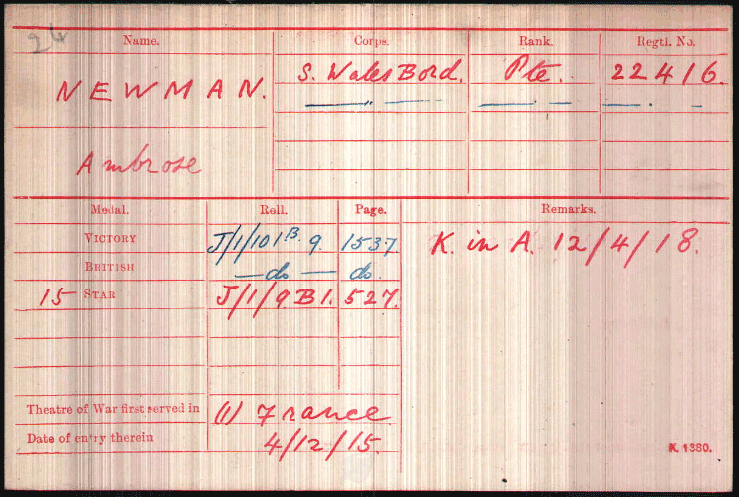 26
Name. Corps. Rank. Regtl. No.
NEWMAN. S. Wales Bord. Pte. 22416.
— „ — — . — — . —
Ambrose
Medal. Roll. Page. Remarks.
VICTORY J/1/101B.9. 1537. K. in A. 12/4/18.
BRITISH —do— do.
15 STAR J/1/9B1. 527.
Theatre of War first served in (1) France
Date of entry therein 4/12/15.
K. 1380.